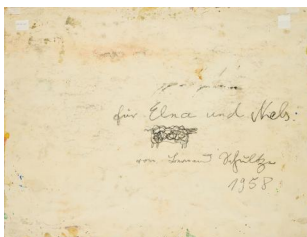 für Elna und Niels:
von Bernard Schultze
1958